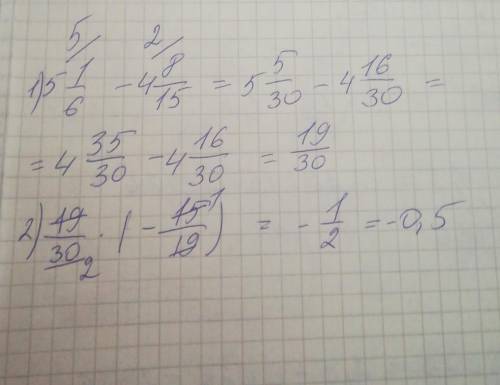 5/ 2/
1) 5 1/6 - 4 8/15 = 5 5/30 - 4 16/30 =
= 4 35/30 - 4 16/30 = 19/30
2) 19/30 · (- 15/19) = - 1/2 = -0,5
1
2